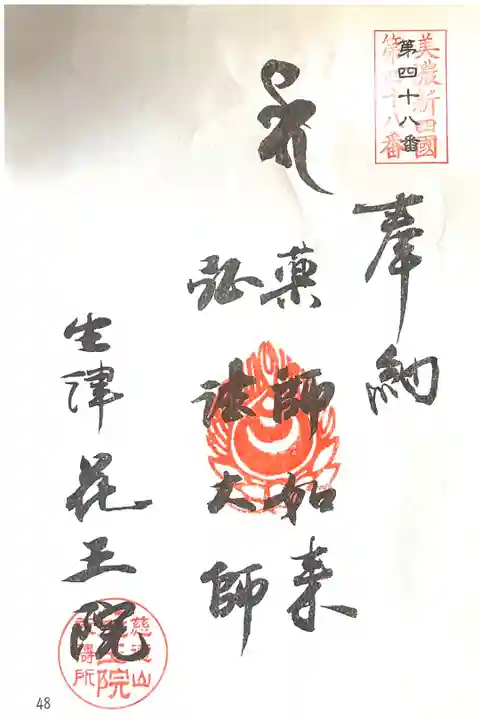 美濃新四國
第四十八番
第四十八番
奉納
薬師如来
弘法大師
生津花王院
48